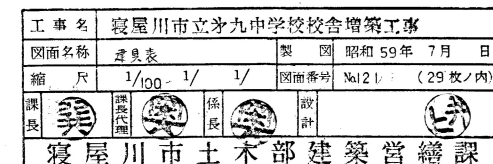 工事名 寝屋川市立才九中学校校舎増築工事
図面名称 建具表 製図 昭和59年 7月 日
縮尺 1/100 1/ 1/ 図面番号 No.12 (29枚ノ内)
課長 課長代理 係長 設計
寝屋川市土木部建築営繕課